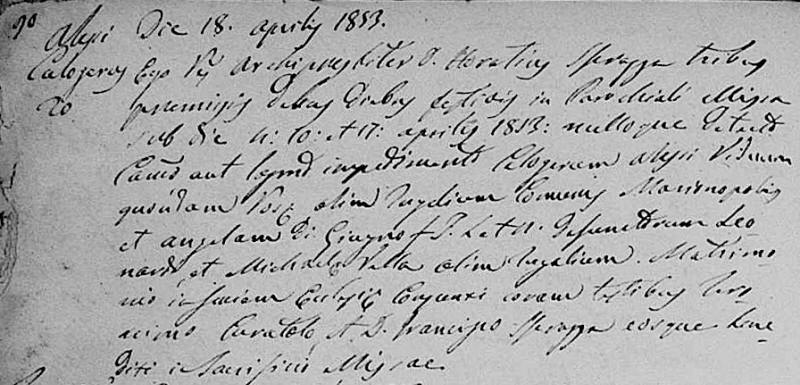 90
Alessi Die 18. aprilis 1853.
Calogerus Ego Vs Archipresbiter D. Horatius Sferrazza tribus
20 premissis debus diebus festivis in Parochiali Missa
sub die 4: 10: et 17: aprilis 1853: nulloque detecto
Canco aut legmo impedimento Calogerum Alessi Viduum
quondam Ros olim Jugalium Communis Marianopolis
et angelam Di Giugno f. l. et n. defunctorum Leo
nardi, et Michaela Vella olim Jugalium. Matrimo
nio in faciem Ecclesie Conjunxi coram testibus
Curatolo, et D. Francisco Sferrazza eosque bene
dixi in Sacrificio Missae.